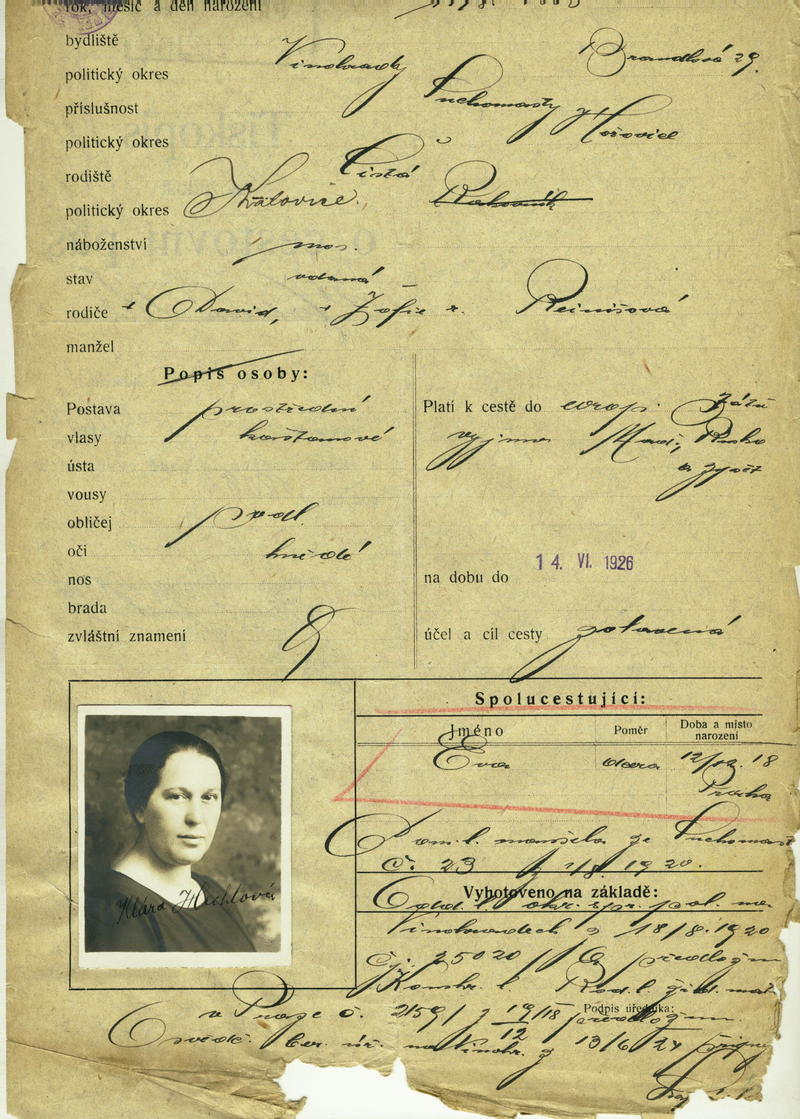 rok, měsíc a den narození
bydliště Vinohrady Brandlova 29.
politický okres
příslušnost Suchomasty Hořovice
politický okres
rodiště Čistá
politický okres Kralovice, Rakovník
náboženství mos.
stav vdaná
rodiče David, Žofie r. Reinišová
manžel
Popis osoby:
Postava prostřední
vlasy kaštanové
ústa
vousy
obličej podl.
oči hnědé
nos
brada
zvláštní znamení
Platí k cestě do evrop. států
vyjma Maď., Rusko
na dobu do 14. VI. 1926
účel a cíl cesty zotavená
Spolucestující:
Jméno Poměr Doba a místo narození
Eva dcera 12/12. 18
Praha
Dom. l. manžela ze Suchomast
č. 23 z 1/8. 1920.
Vyhotoveno na základě:
Vinohradech z 18/8. 1920
čj. 25020
Podpis úředníka:
v Praze č. 2159/ z 19/12 18
na Vinohr. z 13/6 24
Klára Hechtová